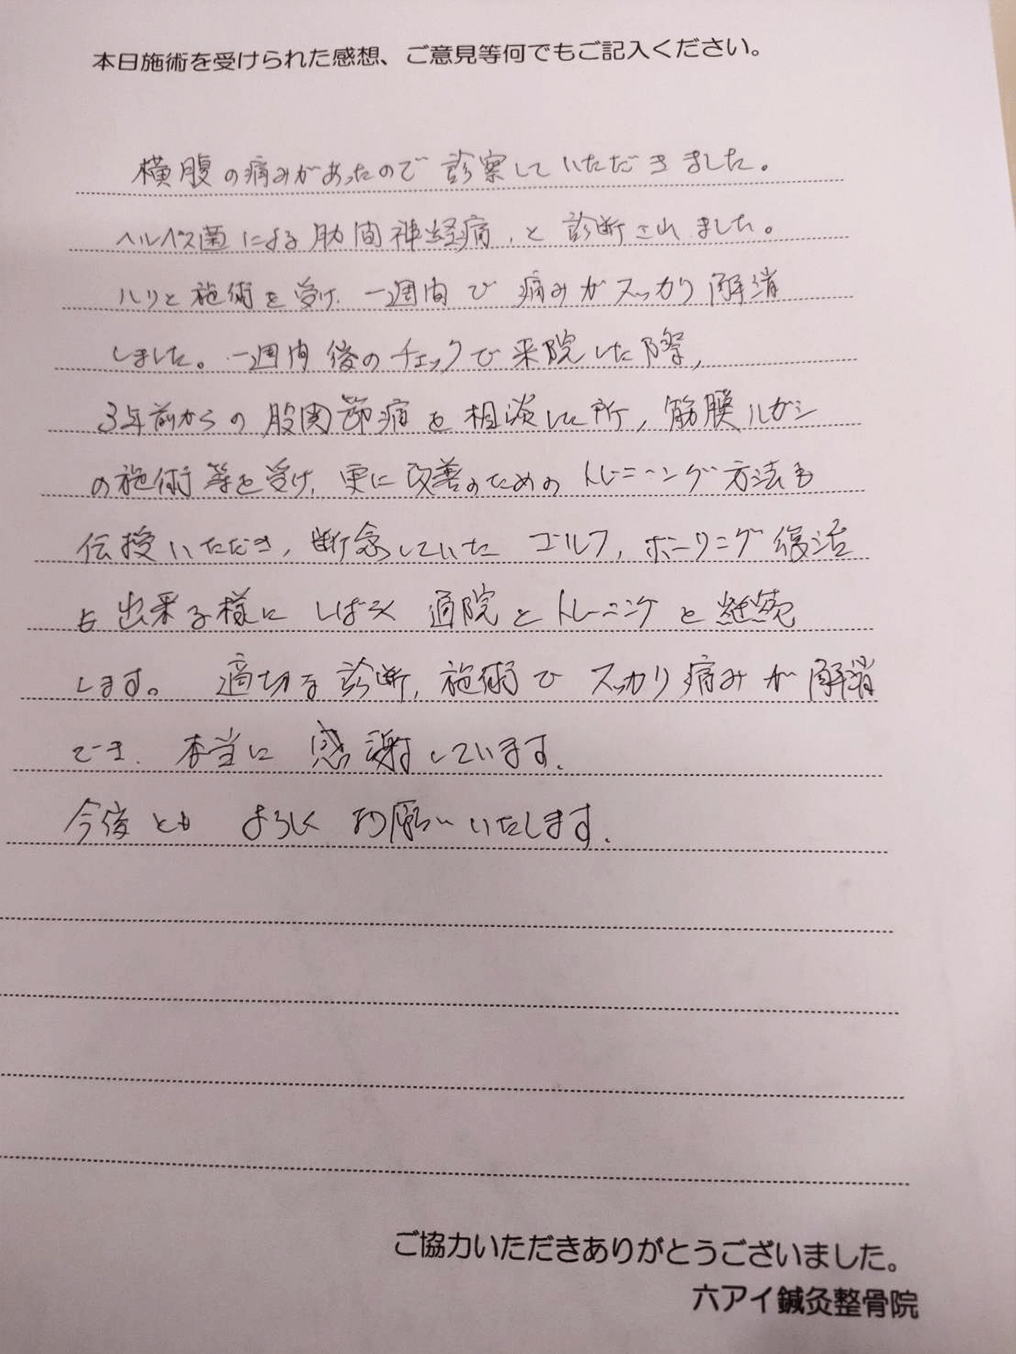 本日施術を受けられた感想、ご意見等何でもご記入ください。
横腹の痛みがあったので診察していただきました。
ヘルペス菌による肋間神経痛、と診断されました。
ハリと施術を受け、一週間で痛みがスッカリ解消
しました。一週間後のチェックで来院した際、
3年前からの股関節痛を相談した所、筋膜ハガシ
の施術等を受け、更に改善のためのトレーニング方法も
伝授いただき、断念していたゴルフ、ボーリング復活
も出来る様にしばらく通院とトレーニングを継続
します。適切な診断、施術でスッカリ痛みが解消
でき、本当に感謝しています。
今後ともよろしくお願いいたします。
ご協力いただきありがとうございました。
六アイ鍼灸整骨院